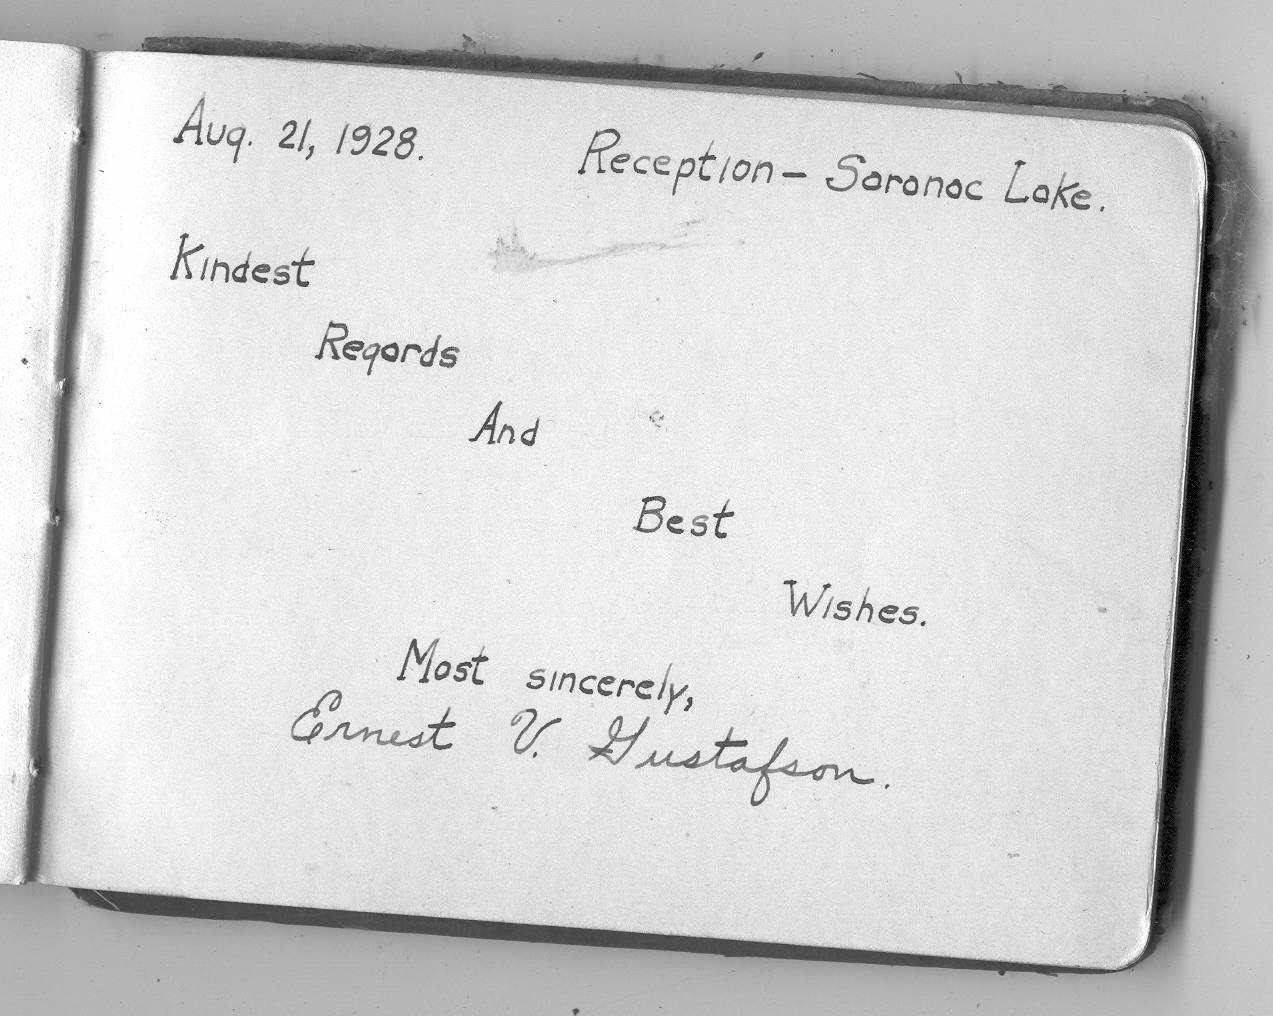 Aug. 21, 1928. Reception – Saranac Lake.
Kindest
Regards
And
Best
Wishes.
Most sincerely,
Ernest V. Gustafson.